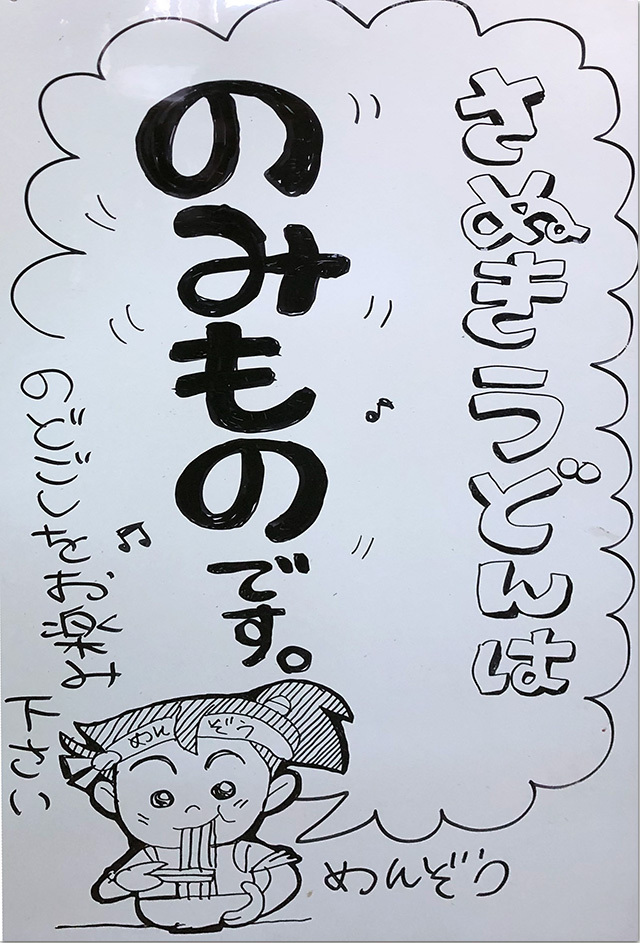 さぬきうどんは
のみものです。
のどごしをお楽しみ
下さい
めんぞう
めんぞう